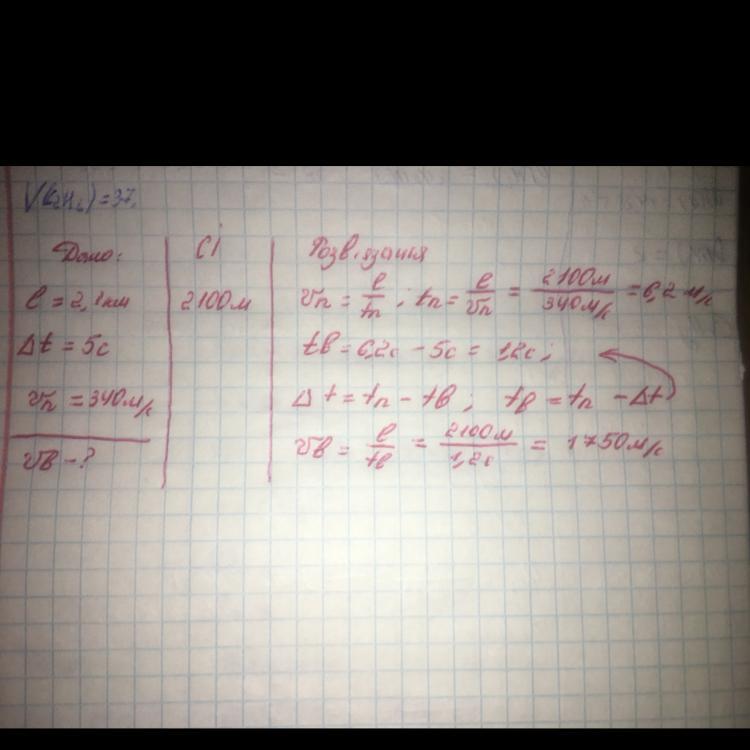 V(C₂H₂)=37.
Дано:
l = 2,1км
Δt = 5с
υп = 340м/с
υв - ?
СІ
2100м
Розв'язання
υп = l/tп ; tп = l/υп = 2100м/340м/с = 6,2 м/с
tв = 6,2с - 5с = 1,2с;
Δt = tп - tв ; tв = tп - Δt
υв = l/tв = 2100м/1,2с = 1750м/с